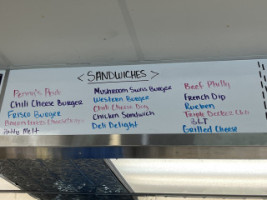 < SANDWICHES >
Chili Cheese Burger
Frisco Burger
Patty Melt
Mushroom Swiss Burger
Western Burger
Chili Cheese Dog
Chicken Sandwich
Deli Delight
Beef Philly
French Dip
Rueben
Triple Decker Club
BLT
Grilled Cheese